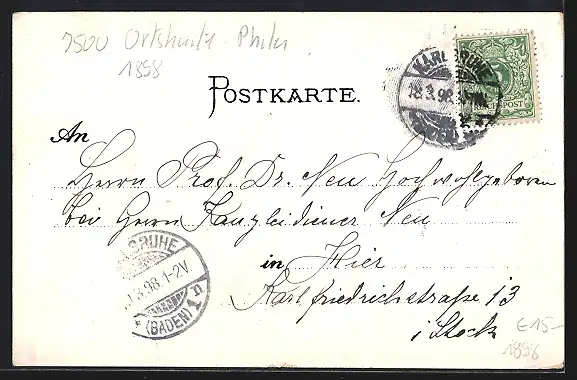 7500 Ortskunde Philer
1898
POSTKARTE.
KARLSRUHE
18.3.98.
POST
An
Herrn Prof. Dr. Neu Hochwohlgeboren
bei Herrn Kanzleidiener Neu
in Hier
Karlfriedrichstraße 13
i Stock
RUHE
.3.98.1-2V
* (BADEN) 1n
€15-
1898